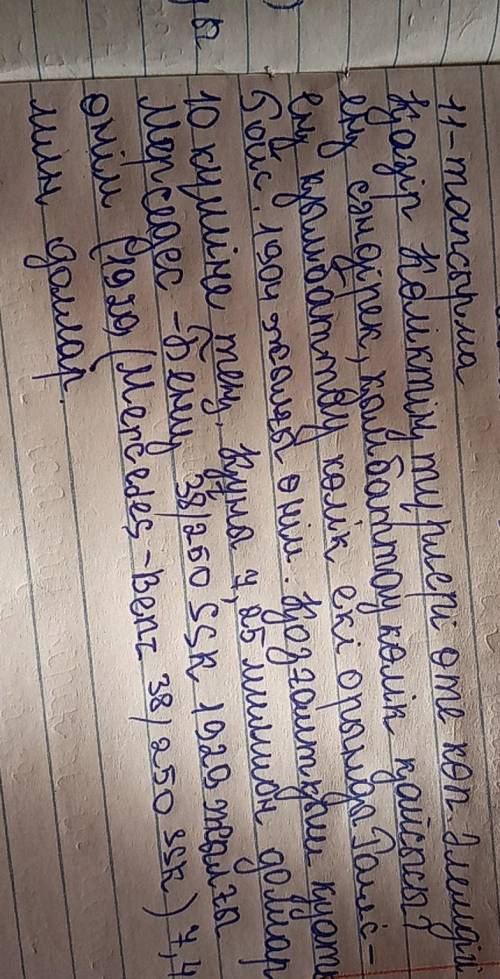 11-тапсырма
Қазір көліктің түрлері өте көп. Әлемдегі
ең сәндірек, қымбаттау көлік қайсысы?
ең қымбаттау көлік екі орынды Роллс-
Ройс. 1904 жолғы өнім. Қозғалтқыш қуаты
10 күшіне тең. Құны 7,25 миллион доллар
Мерседес-Бенц 38/250 SSK 1929 жылғы
өнім (1929, (Mercedes-Benz 38/250 SSK) 7,4
млн доллар.